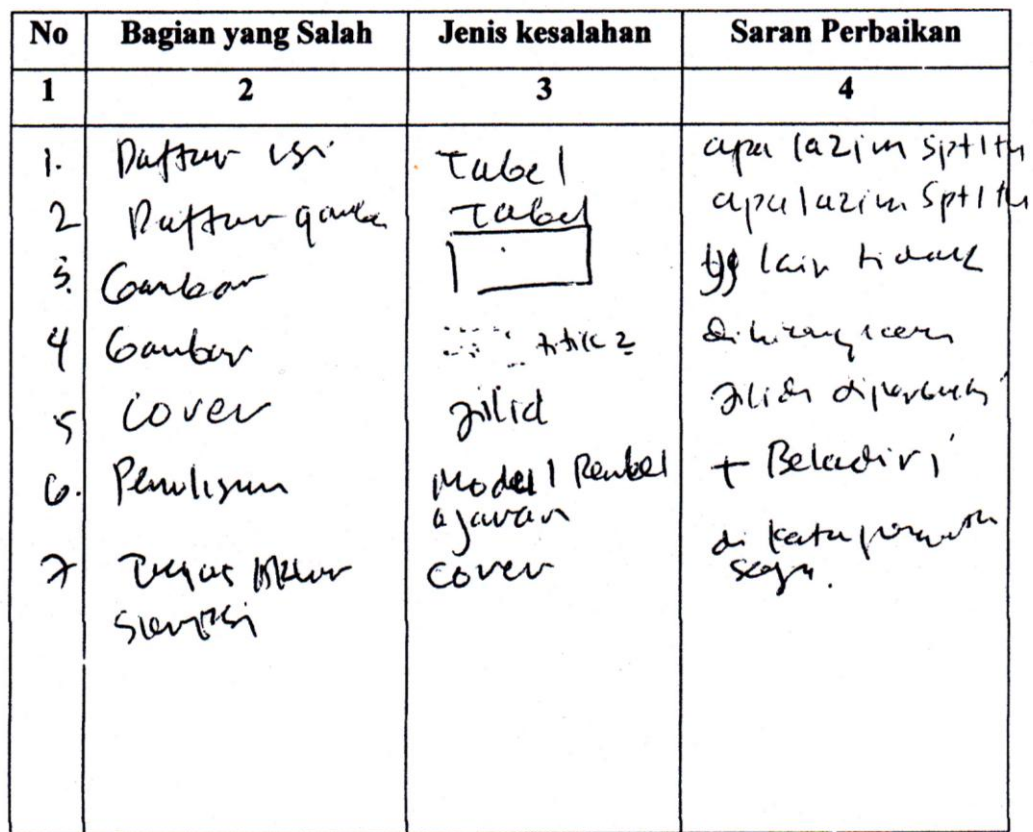 No Bagian yang Salah Jenis kesalahan Saran Perbaikan
1 2 3 4
1. Daftar isi Tabel apa lazim sptltu
2 Daftar gamba Tabel apa lazim sptltu
3. Gambar yg lain tidak
4 Gambar titik2 dihilangkan
5 Cover jilid jilid diperbaiki
6. Penulisan Model Pembel + Beladiri
ajaran
7 Tugas Akhir cover di kata pengantar
Skripsi saja.